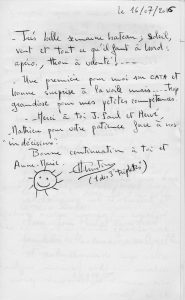 le 16/07/2015
- Très belle semaine bateau ; soleil,
vent et tout ce qu'il faut à bord :
apéro, thon à volonté! ....
- Une première pour moi sur CATA et
bonne surprise à la voile mais .... trop
grandiose pour mes petites compétences.
- Merci à toi J. Paul et Hervé,
Mathieu pour votre patience face à nos
"indécisions".
Bonne continuation à toi et
Anne-Marie.
(1 des 3